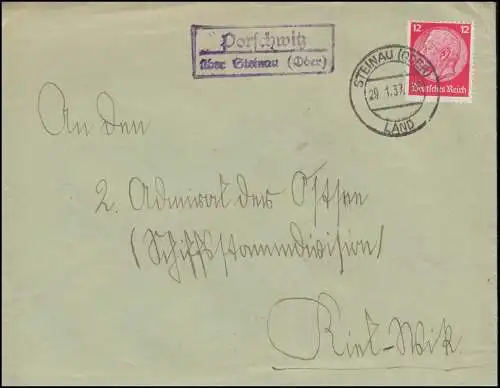 Porschwitz
über Steinau (Oder)
STEINAU (ODER)
29.1.37.
LAND
12 12
Deutsches Reich
An den
2. Admiral der Ostsee
(Schiffsstammdivision)
Kiel-Wik.